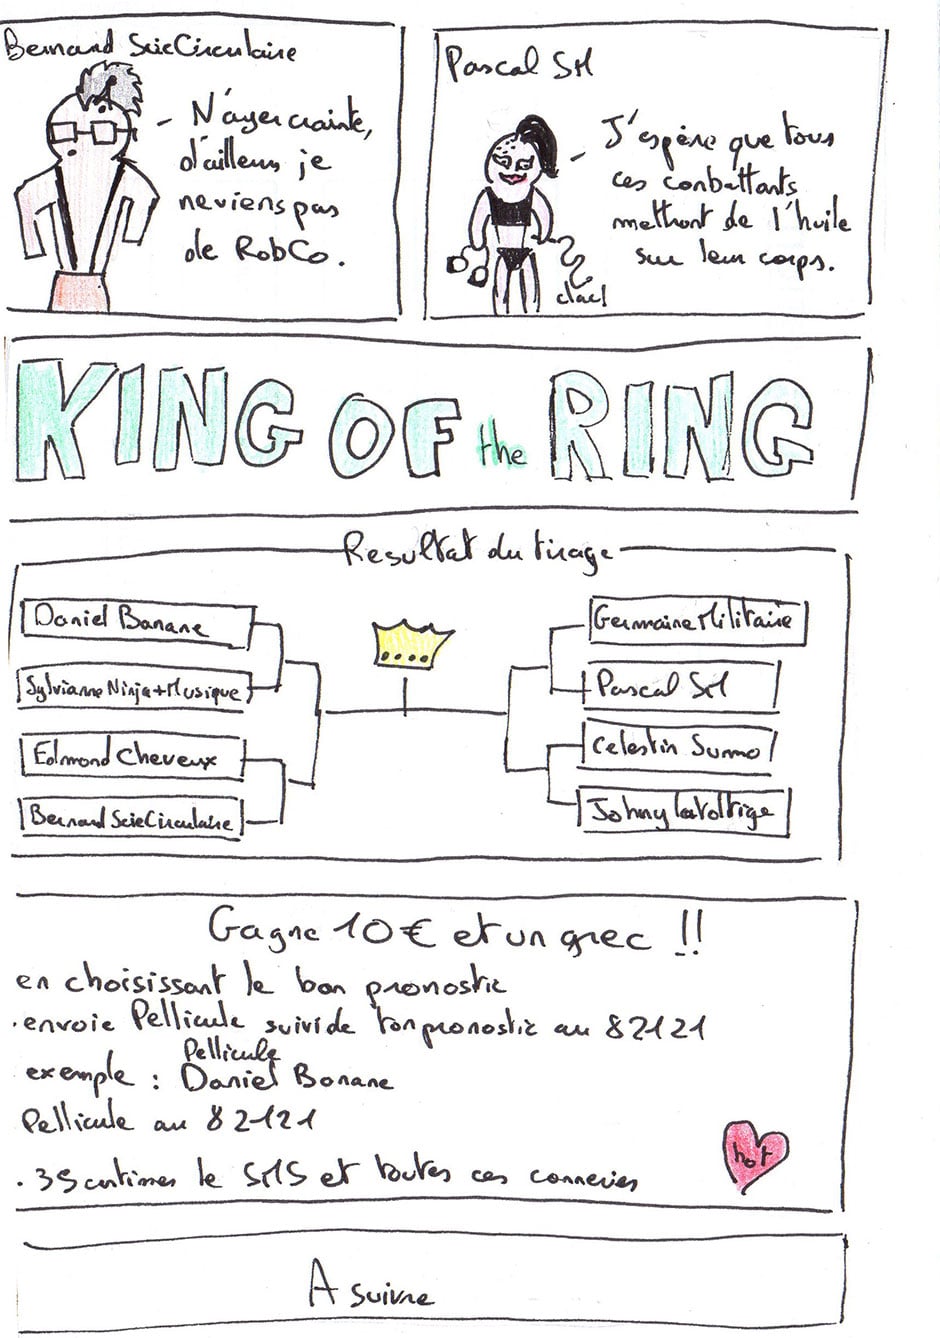 Bernard ScieCirculaire
- N'ayer crainte,
d'ailleurs je
ne viens pas
de RobCo.
Pascal SM
- J'espère que tous
ces conbattants
mettront de l'huile
sur leur corps.
clac!
KING OF the RING
Resultat du tirage
Daniel Banane
Sylvianne Ninja+Musique
Edmond Cheveux
Bernard ScieCirculaire
Germaine Militaire
Pascal SM
Celestin Summo
Johny la voltige
Gagne 10€ et un grec !!
en choisissant le bon pronostic
. envoie Pellicule suivi de ton pronostic au 82121
Pellicule
exemple : Daniel Banane
Pellicule au 82121
. 35 centimes le SMS et toutes ces conneries
hot
A suivre